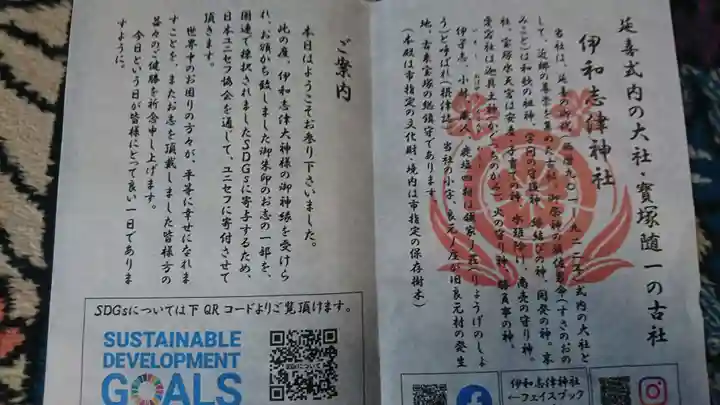 延喜式内の大社・寳塚随一の古社
伊和志津神社
当社は、延喜の御代(西暦九〇一〜九二二年)式内の大社と
して、近郷の崇敬を集めた古社。御祭神の須佐男命(すさのおの
みこと)は和歌の祖神、家内の守護神、縁結びの神、開発の神。本
社、宝塚水天宮は安産・子育ての神、水難除け、商売の守り神。
愛宕社は迦具土神(かぐつちのかみ)、火の守り神、勝負事の神。
伊孑志、小林、蔵人、鹿塩四郷は領家ノ荘(りょうけのしょ
う)と呼ばれ(摂津誌)、当社の小字、良元ノ座が旧良元村の発生
地、古来宝塚の総鎮守であります。
(本殿は市指定の文化財・境内は市指定の保存樹木)
伊和志津神社
←フェイスブック
ご案内
本日はようこそお参り下さいました。
此の度、伊和志津大神様の御神縁を受けら
れ、お頒かち致しました御朱印のお志の一部を、
国連で採択されましたSDGsに寄与するため、
日本ユニセフ協会を通して、ユニセフに寄付させて
頂きます。
世界中のお困りの方々が、平等に幸せになれま
すことを、またお志を頂戴しました皆様方の
益々のご健勝を祈念申し上げます。
今日という日が皆様にとって良い一日でありま
すように。
SDGsについては下QRコードよりご覧頂けます。
SUSTAINABLE
DEVELOPMENT
GOALS